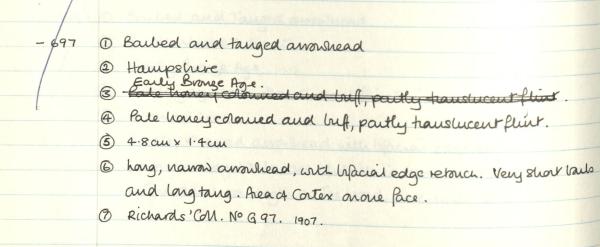 -697 ① Barbed and tanged arrowhead
② Hampshire
Early Bronze Age.
③ Pale honey coloured and buff, partly translucent flint.
④ Pale honey coloured and buff, partly translucent flint.
⑤ 4.8cm x 1.4cm
⑥ Long, narrow arrowhead, with bifacial edge retouch. Very short barbs
and long tang. Area of Cortex on one face.
⑦ Richards' Coll. No G97. 1907.